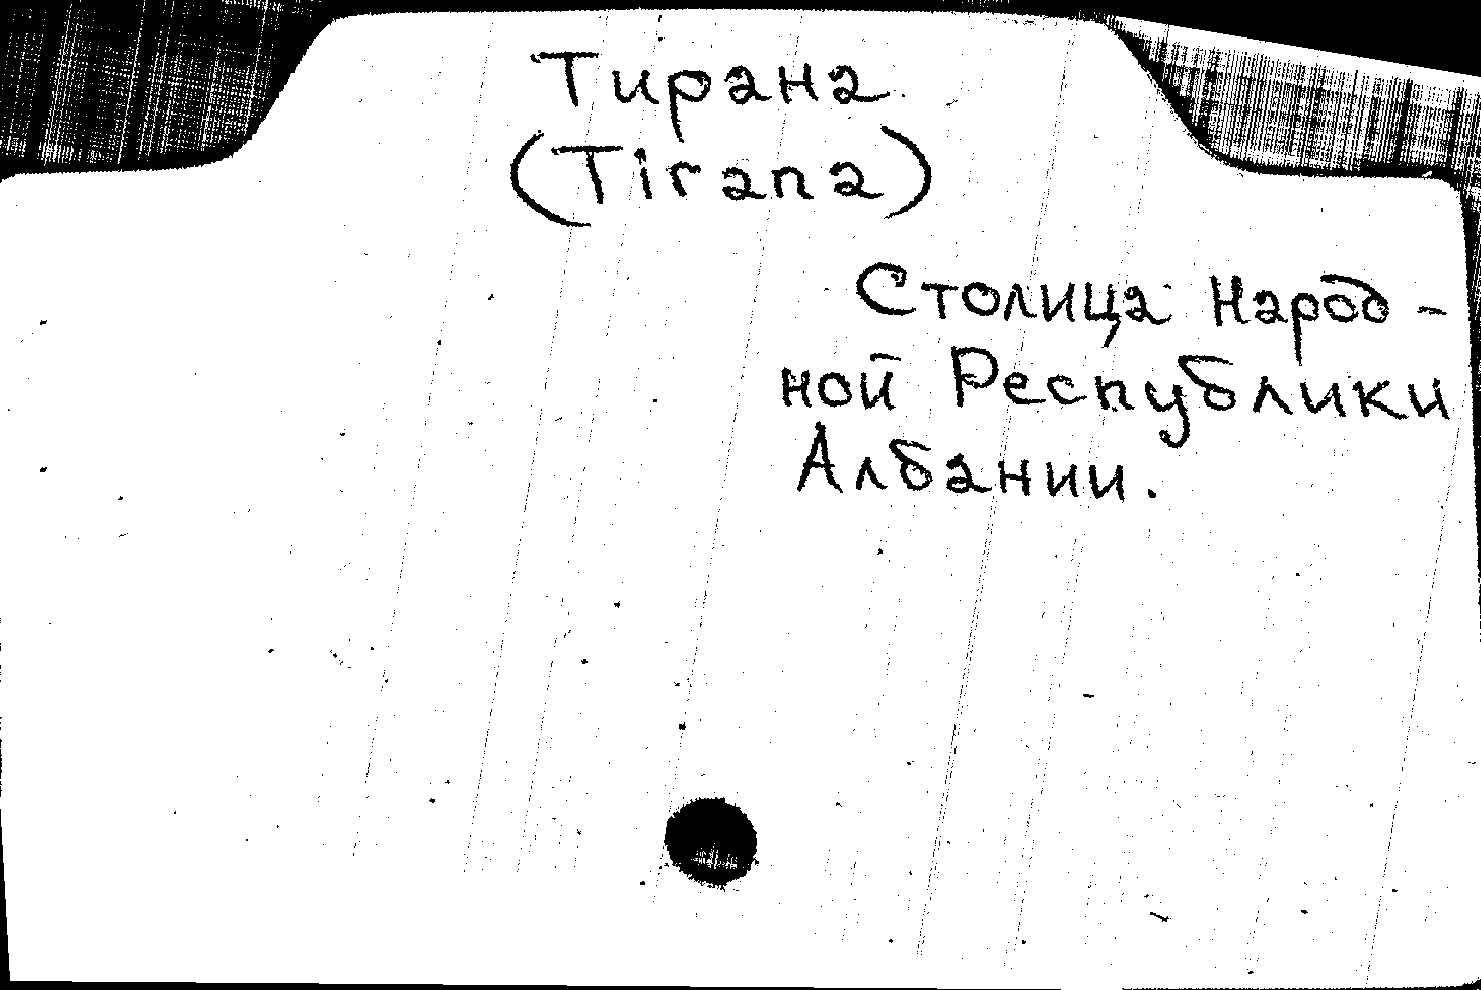 Тирана
(Tirana)
Столица Народ-
ной Республики
Албании.